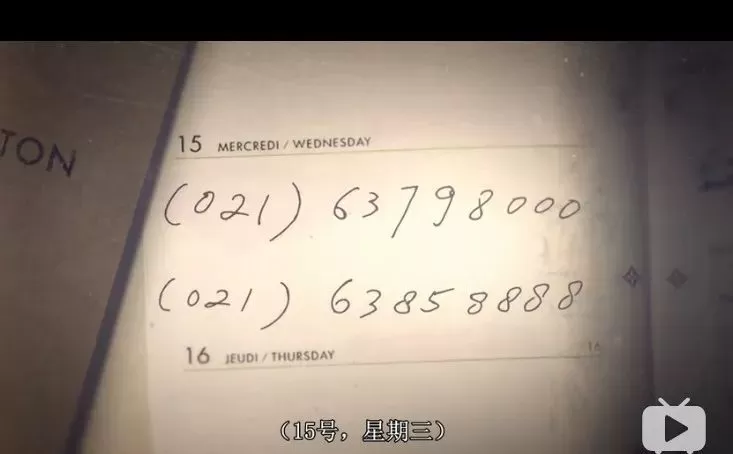 TON
15 MERCREDI / WEDNESDAY
(021) 63798000
(021) 63858888
16 JEUDI / THURSDAY
16
(15号，星期三)